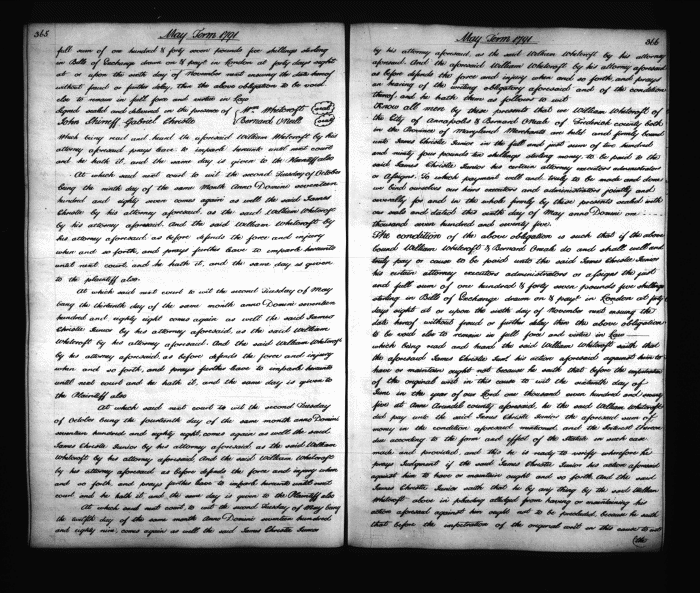 365
May Term 1791
full sum of one hundred & forty seven pounds five shillings sterling
in Bills of Exchange drawn on & payt in London at forty days sight
at or upon the sixth day of November next ensuing the date hereof
without fraud or further delay, then the above obligation to be void
else to remain in full force and virtue in Law
signed sealed and delivered in the presence of Wm Whetcroft seal
John Shireff Gabriel Christie Bernard Oneall seal
Which being read and heard the aforesaid William Whetcroft by his
attorney aforesaid prays leave to imparle hereunto until next court
and he hath it, and the same day is given to the Plaintiff also
At which said next court to wit the second Tuesday of October
being the ninth day of the same Month Anno Domini seventeen
hundred and eighty seven comes again as well the said James
Christie by his attorney aforesaid, as the said William Whetcroft
by his attorney aforesaid. And the said William Whetcroft by
his attorney aforesaid, as before defends the force and injury
when and so forth, and prays further leave to imparle hereunto
until next court and he hath it, and the same day is given
to the plaintiff also.
At which said next court to wit the second Tuesday of May
being the thirteenth day of the same month anno Domini seventeen
hundred and eighty eight comes again as well the said James
Christie Junior by his attorney aforesaid, as the said William
Whetcroft by his attorney aforesaid. And the said William Whetcroft
by his attorney aforesaid, as before defends the force and injury
when and so forth, and prays further leave to imparle hereunto
until next court and he hath it, and the same day is given to
the Plaintiff also
At which said next court to wit the second Tuesday
of October being the fourteenth day of the same month anno Domini
seventeen hundred and eighty eight comes again as well the said
James Christie Junior by his attorney aforesaid as the said William
Whetcroft by his attorney aforesaid, And the said William Whetcroft
by his attorney aforesaid as before defends the force and injury when
and so forth and prays further leave to imparle hereunto until next
court and he hath it, and the same day is given to the Plaintiff also
At which said next court, to wit the second Tuesday of May being
the twelfth day of the same month Anno Domini seventeen hundred
and eighty nine comes again as well the said James Christie Junior
May Term 1791
366
by his attorney aforesaid, as the said William Whetcroft by his attorney
aforesaid. And the aforesaid William Whetcroft by his attorney aforesaid
as before defends the force and injury when and so forth, and prays
an hearing of the writing obligatory aforesaid and of the condition
thereof and he hath them as follows to wit
Know all men by these presents that we William Whetcroft of
the City of Annapolis & Bernard Oneale of Frederick county both
in the Province of Maryland Merchants are held and firmly bound
unto James Christie Junior in the full and just sum of two hundred
and ninety four pounds ten shillings sterling money to be paid to the
said James Christie Junior his certain attorney executors administrators
or Assigns. To which payment well and truly to be made and done
we bind ourselves our heirs executors and administrators jointly and
severally for and in the whole firmly by these presents sealed with
our seals and dated this sixth day of May anno Domini one
thousand seven hundred and seventy five.
The condition of the above obligation is such that if the above
bound William Whetcroft & Bernard Oneale do and shall well and
truly pay or cause to be paid unto the said James Christie Junior
his certain attorney executors administrators or assigns the just
and full sum of one hundred & forty seven pounds five shillings
sterling in Bills of Exchange drawn on & payt in London at forty
days sight at or upon the sixth day of November next ensuing the
date hereof without fraud or further delay then the above obligation
to be void else to remain in full force and virtue in Law
which being read and heard the said William Whetcroft saith that
the aforesaid James Christie Junr his action aforesaid against him to
have or maintain ought not because he saith that before the impetration
of the original writ in this cause to wit the sixteenth day of
June in the year of our Lord one thousand seven hundred and seventy
five at Anne Arundel county aforesaid, he the said William Whetcroft
did pay unto the said James Christie Junior the aforesaid sum of
money in the condition aforesaid mentioned, and the Interest thereon
due according to the form and effect of the Statute in such case
made and provided, and this he is ready to verify wherefore he
prays Judgment if the said James Christie Junior his action aforesaid
against him to have or maintain ought and so forth. And the said
James Christie Junior saith that he by any thing by the said William
Whetcroft above in pleading alledged from having or maintaining his
action aforesaid against him ought not to be precluded, because he saith
that before the impetration of the original writ in this cause to wit